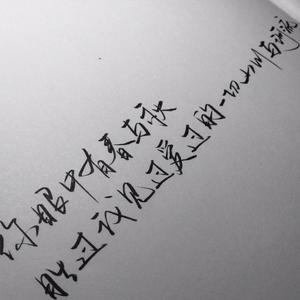 你眼中有春与秋
胜过我见过爱过的一切山川与河流